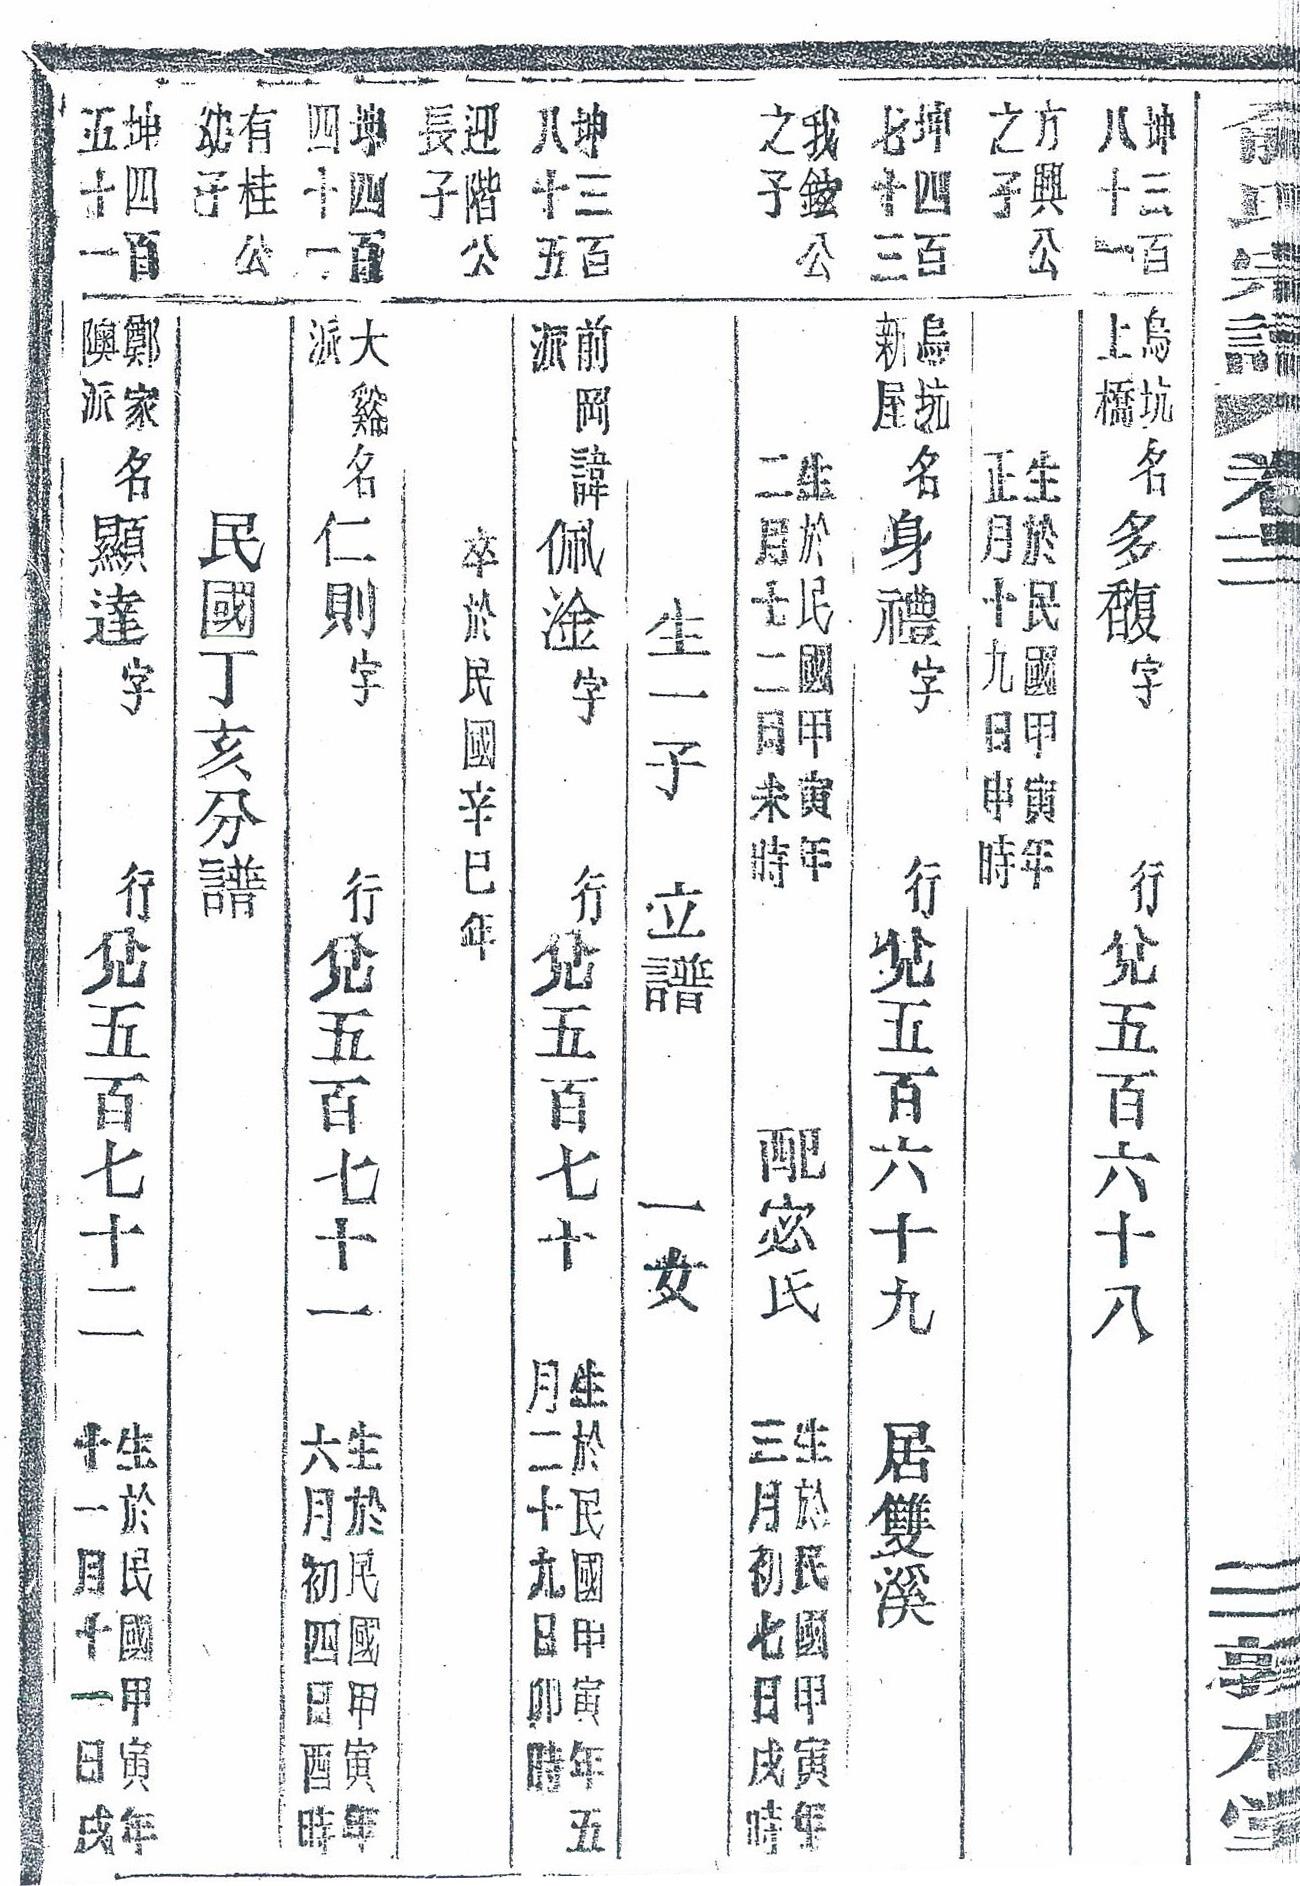 俞氏宗譜 卷三 三 敦本堂
坤三百
八十一
烏坑
上橋
名多馥字 行兌五百六十八
方興公
之子
生於民國甲寅年
正月十九日申時
坤四百
七十三
烏坑
新屋
名身禮字 行兌五百六十九 居雙溪
我鈫公
之子
生於民國甲寅年
二月十二日未時
配宓氏
生於民國甲寅年
三月初七日戌時
生一子 立譜 一女
坤三百
八十五
前岡
派
諱佩淦字 行兌五百七十
生於民國甲寅年五
月二十九日卯時
迎階公
長子
卒於民國辛巳年
坤四百
四十一
大谿
派
名仁則字 行兌五百七十一
生於民國甲寅年
六月初四日酉時
有桂公
幼子
民國丁亥分譜
坤四百
五十一
鄭家
隩派
名顯達字 行兌五百七十二
生於民國甲寅年
十一月十一日戌